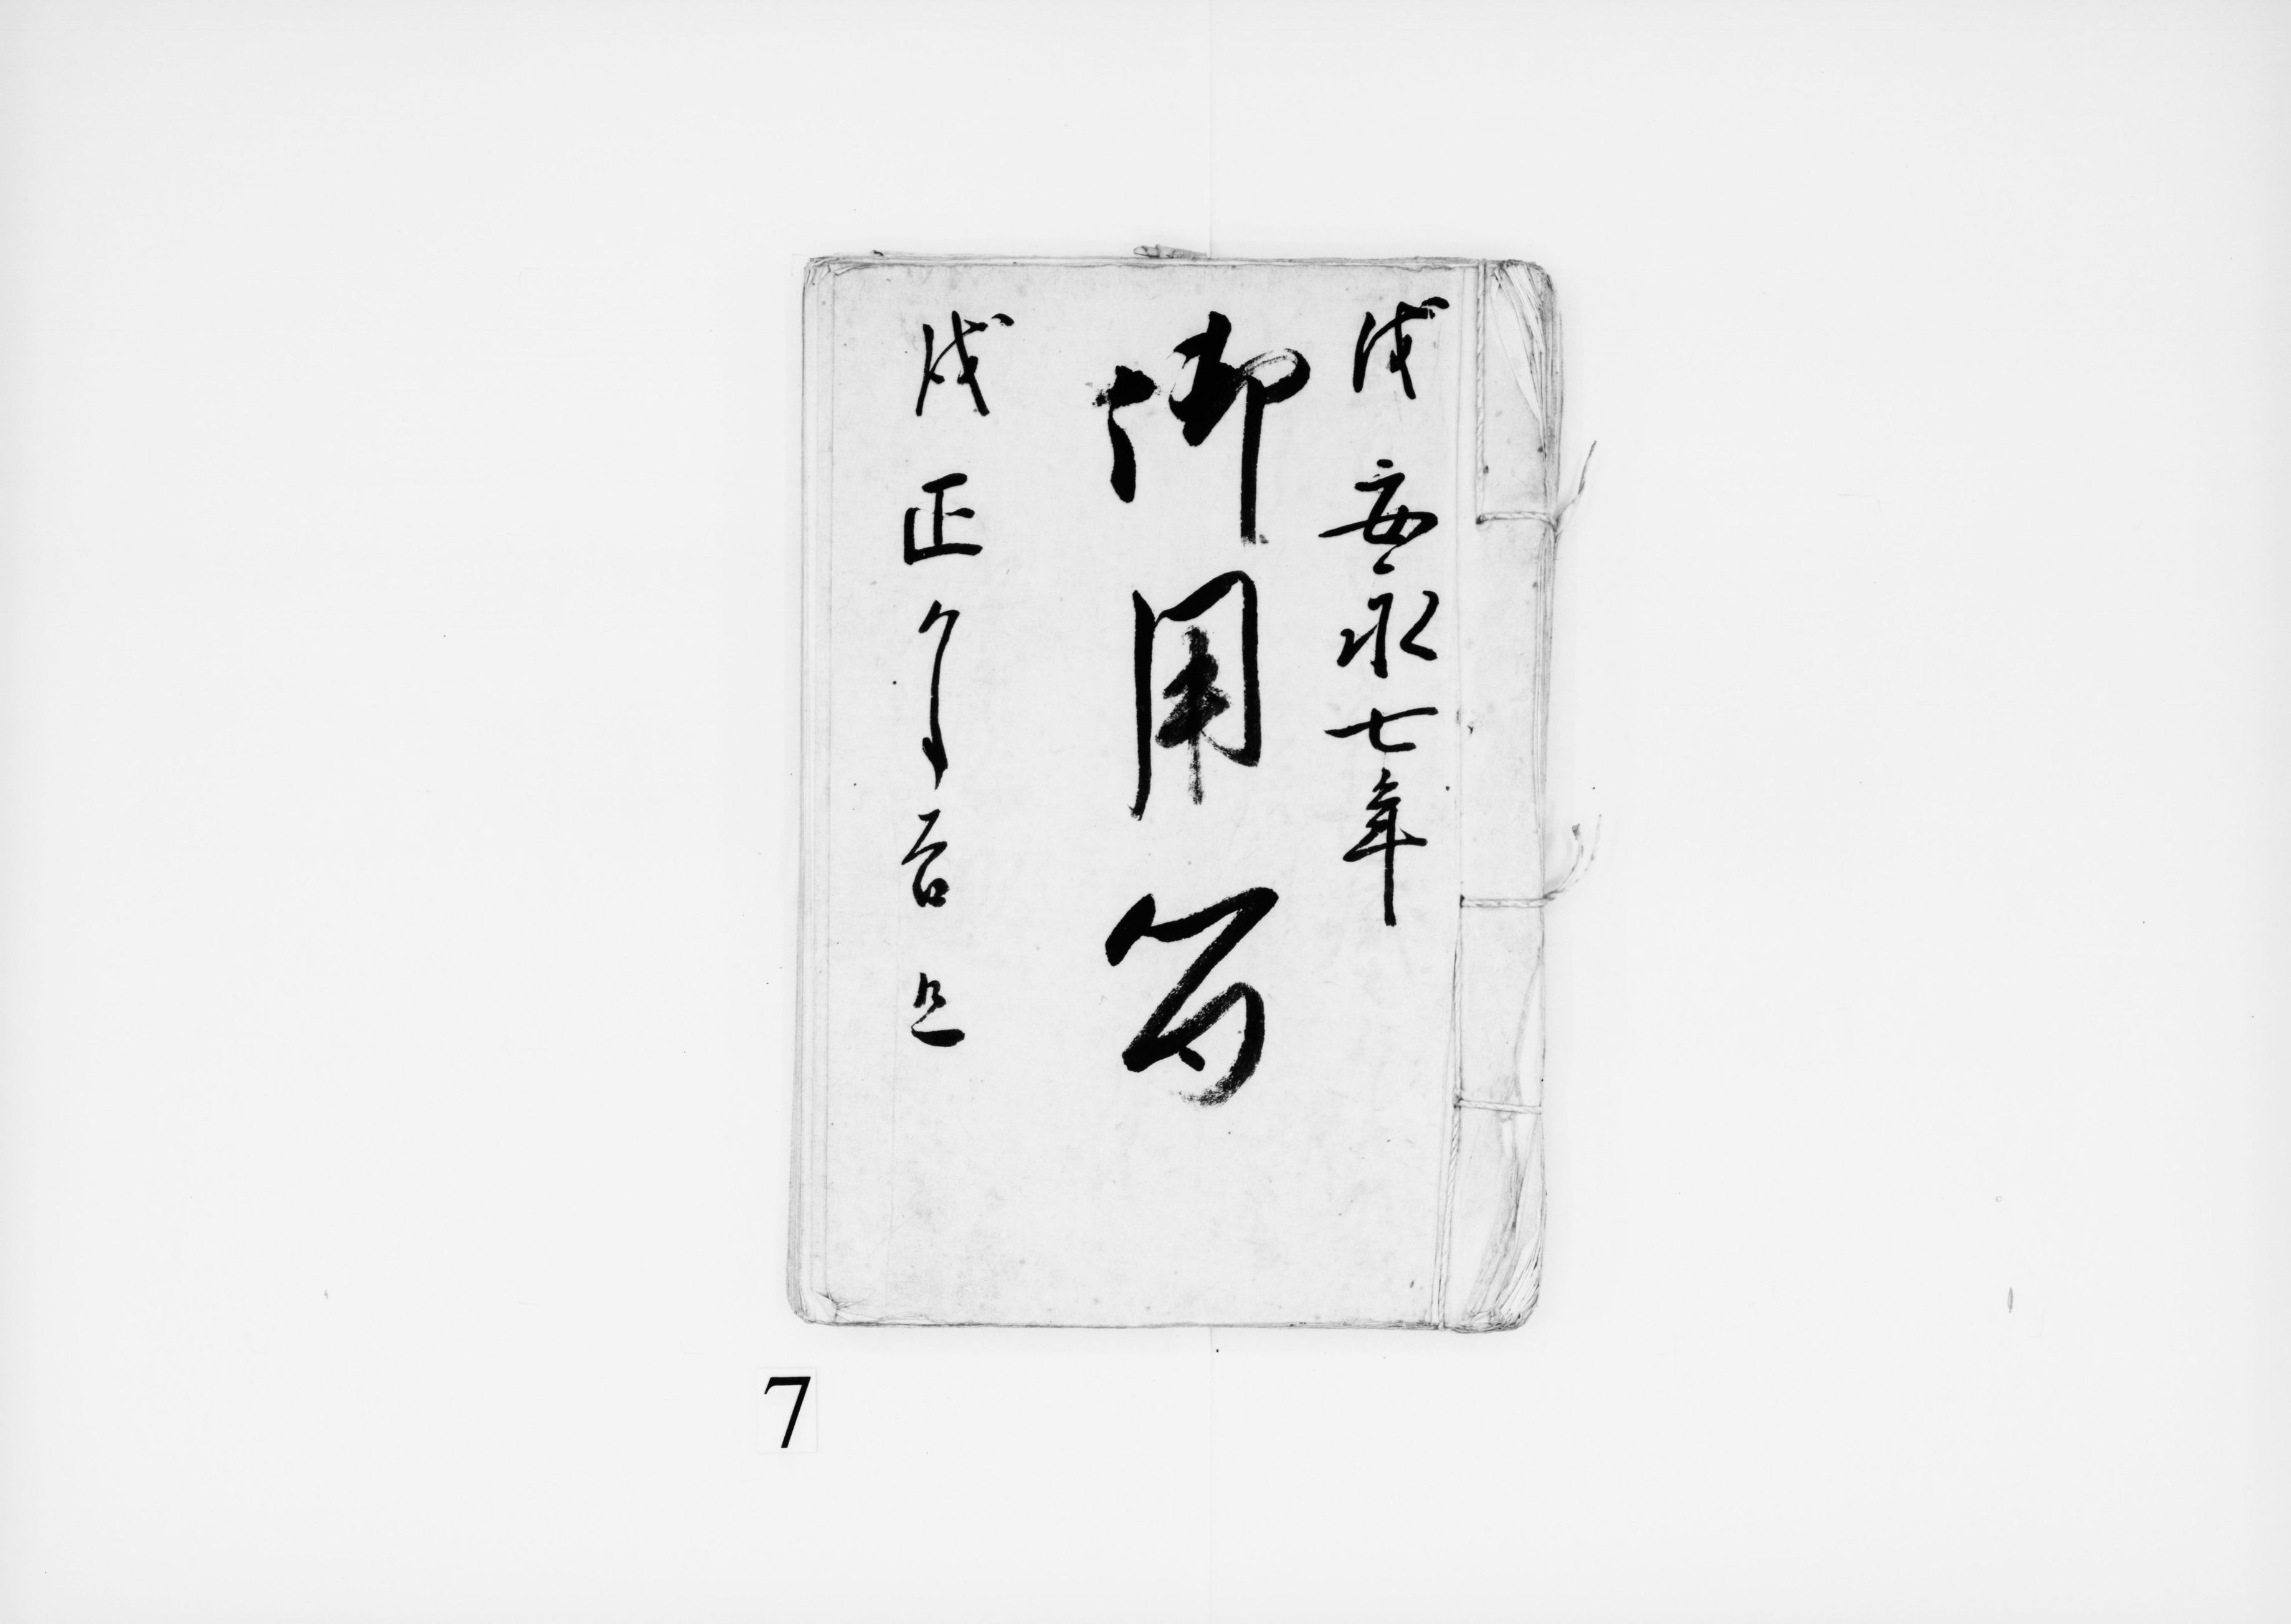 戌 安永七年
御用留
戌 正月吉旦
7